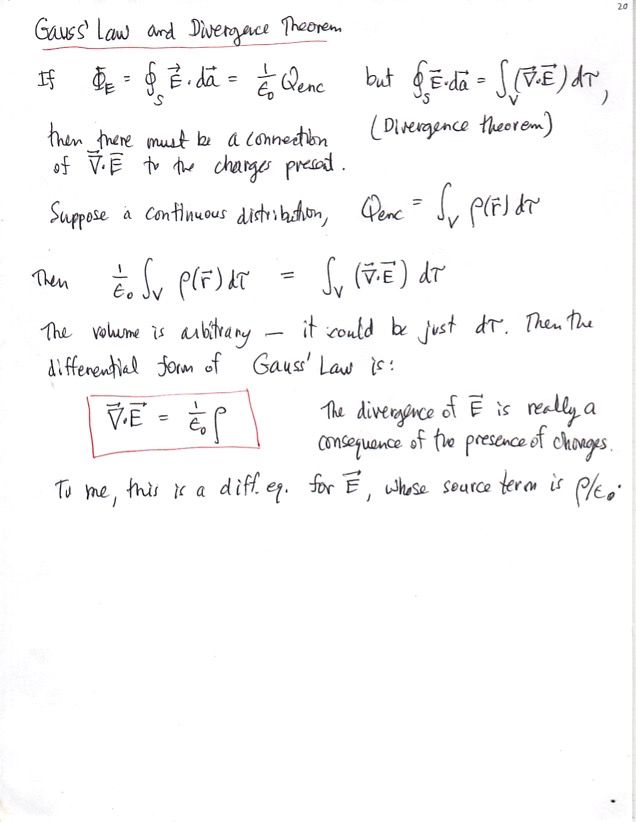 20
Gauss' Law and Divergence Theorem
If Φ_E = ∮_S E⃗ . da⃗ = 1/ε₀ Qenc but ∮_S E⃗.da⃗ = ∫_V (∇⃗.E⃗) dτ,
then there must be a connection (Divergence theorem)
of ∇⃗.E⃗ to the charges present.
Suppose a continuous distribution, Qenc = ∫_V ρ(r⃗) dτ
Then 1/ε₀ ∫_V ρ(r⃗) dτ = ∫_V (∇⃗.E⃗) dτ
The volume is arbitrary — it could be just dτ. Then the
differential form of Gauss' Law is:
∇⃗.E⃗ = 1/ε₀ ρ The divergence of E⃗ is really a
consequence of the presence of charges.
To me, this is a diff. eq. for E⃗, whose source term is ρ/ε₀.